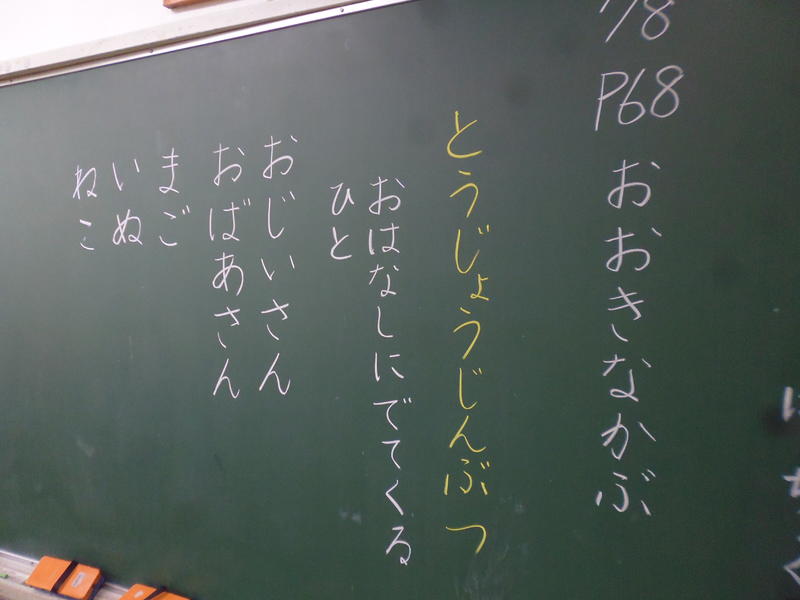 7/8
P68 おおきなかぶ
とうじょうじんぶつ
おはなしにでてくる
ひと
おじいさん
おばあさん
まご
いぬ
ねこ